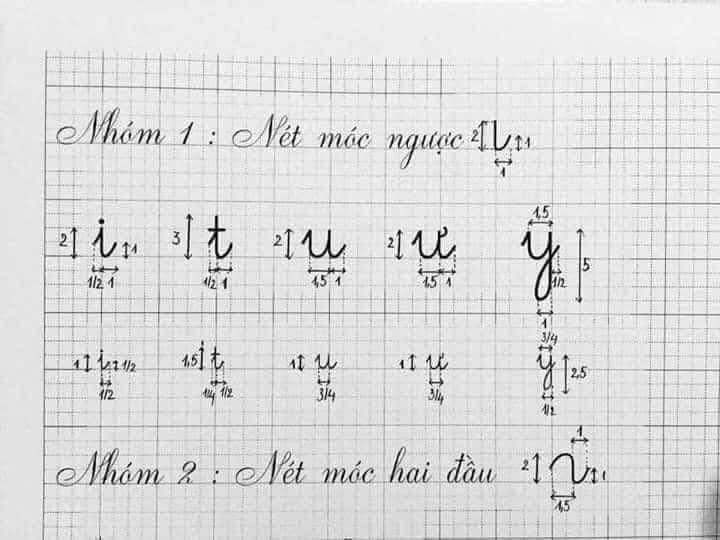 Nhóm 1 : Nét móc ngược 2 1
1
1,5
2 i 1 3 t 2 u 2 ư y 5
1/2 1 1/2 1 1,5 1 1,5 1 1/2
1
3/4
1 i 1/2 1,5 t 1 u 1 ư y 2,5
1/2 1/4 1/2 3/4 3/4 1/2
1
Nhóm 2 : Nét móc hai đầu 2 1
1,5